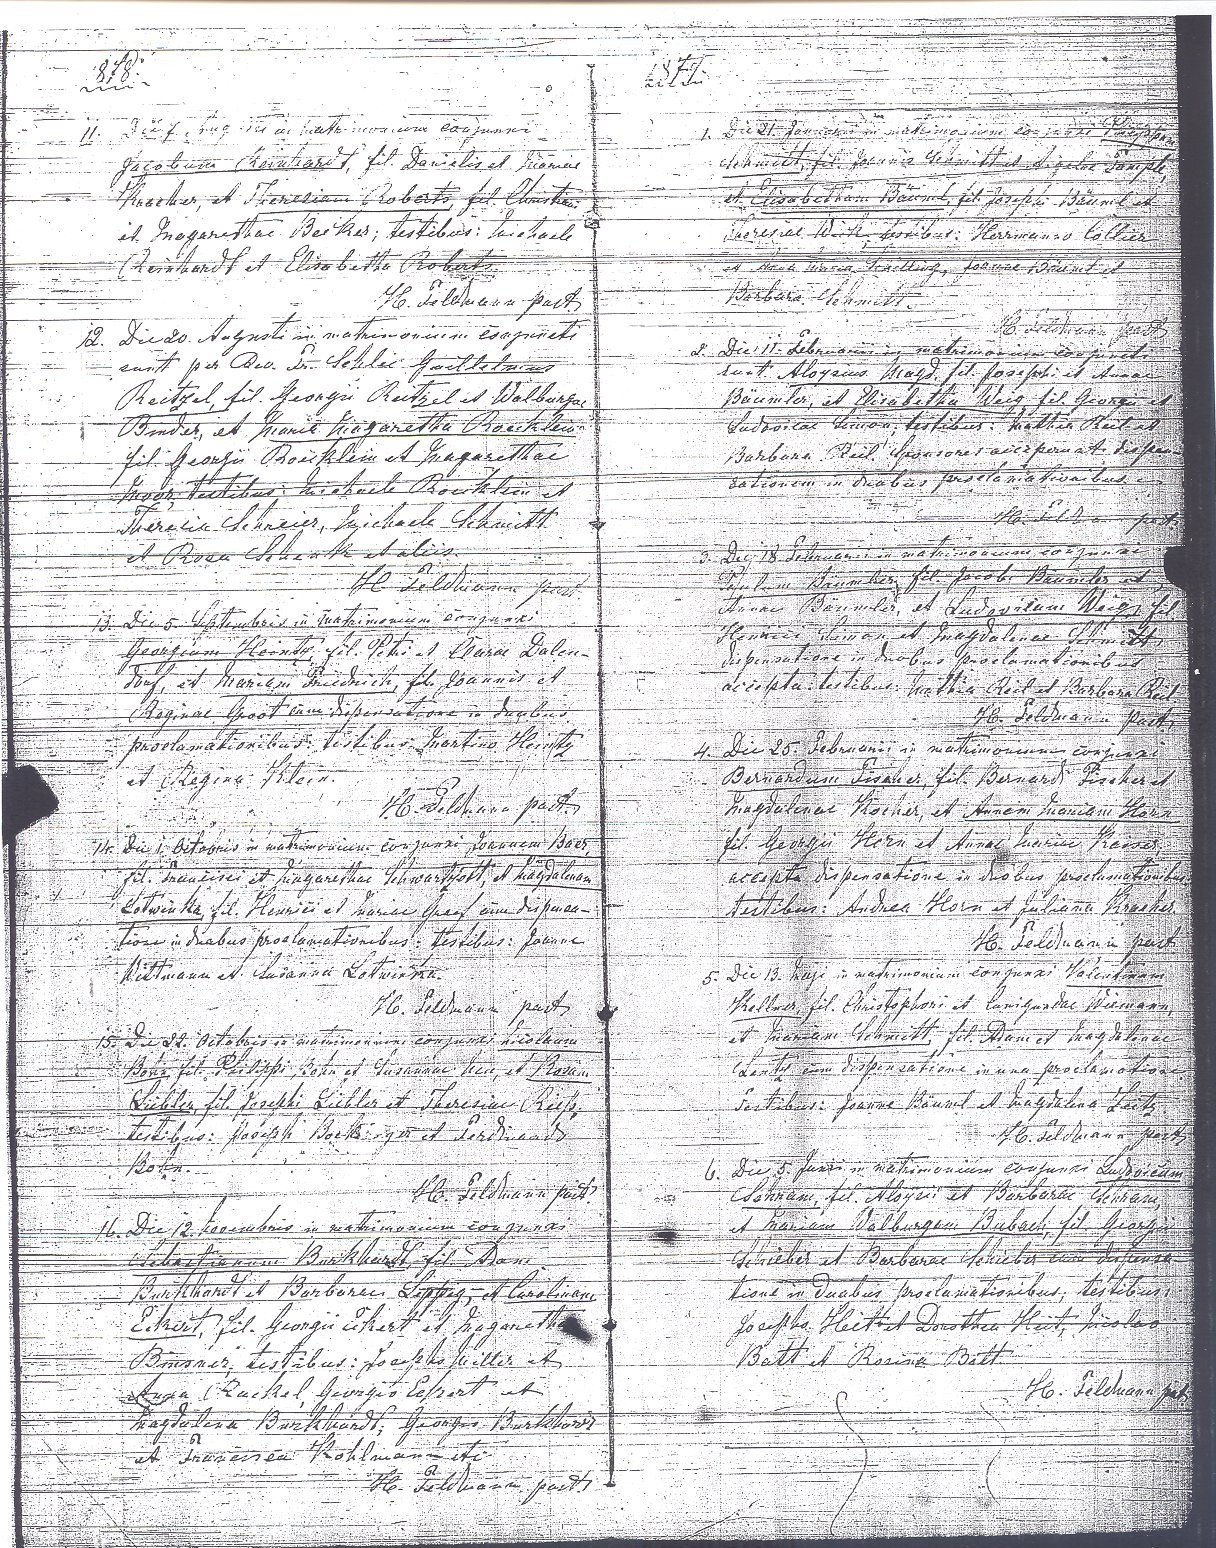 1878.
11. Die 7. Aug. in matrimonium conjunxi
Jacobum Reinhardt, fil. Danielis et Mariae
Kracher, et Theresiam Roberts, fil. Christiani
et Margarethae Becker; testibus: Michaele
Reinhardt et Elisabetha Roberts
H. Feldmann past.
12. Die 20. Augusti in matrimonium conjuncti
sunt per Rev. Fr. Schlee Guillelmus
Reitzel, fil. Georgii Reitzel et Walburgae
Binder, et Maria Magaretha Roecklein
fil. Georgii Roecklein et Magarethae
Moor, testibus: Michaele Roecklein et
Theresia Schreier, Michaele Schmitt
et Rosa Schenk et aliis.
H. Feldmann past.
13. Die 5. Septembris in matrimonium conjunxi
Georgium Herntz, fil. Petri et Clarae Dalen-
dorf, et Mariam Friedrich, fil. Joannis et
Reginae Groot cum dispensatione in duabus
proclamationibus: testibus: Martino Herntz
et Regina Klein.
H. Feldmann past.
14. Die 1. Octobris in matrimonium conjunxi Joannem Baer,
fil. Francisci et Magarethae Schwartzott, et Magdalenam
Lotwinka, fil. Henrici et Mariae Graef cum dispensa-
tione in duabus proclamationibus: testibus: Joanne
Wittmann et Susanna Lotwinka.
H. Feldmann past.
15. Die 22. Octobris in matrimonium conjunxi Nicolaum
Bohn, fil. Philippi Bohn et Susannae Hen, et Rosam
Liebler, fil. Josephi Liebler et Theresiae Reiss,
testibus: Joseph Boekinger et Ferdinand
Bohn.
H. Feldmann past.
16. Die 12. Novembris in matrimonium conjunxi
Sebastianum Burkhardt, fil. Adami
Burkhardt et Barbarae Seppig, et Carolinam
Eckert, fil. Georgii Eckert et Magarethae
Binsner, testibus: Josepho Miller et
Anna Rackel, Georgio Eckert et
Magdalena Burkhardt, Georgio Burkhardt
et Francisca Kohlmann etc
H. Feldmann past.
1879.
1. Die 21. Januarii in matrimonium conjunxi
Schmitt, fil. Joannis Schmitt et
et Elisabetham Bäuml, fil. Josephi Bäuml et
Theresiae Wirk, testibus: Herrmanno Collier
et Anna Maria Joanne Bäuml et
Barbara Schmitt.
H. Feldmann past.
2. Die 11. Februarii in matrimonium conjuncti
sunt Aloysius Magd. fil. Josephi et Annae
Bäumler, et Elisabetha Weig, fil. Georgii et
Ludovicae Simon; testibus: Mathia Reil et
Barbara Reil. Sponsores acceperunt dispen-
sationem in duabus proclamationibus.
H. Feldmann past.
3. Die 18. Februarii in matrimonium conjunxi
Paulum Bäumler, fil. Jacobi Bäumler et
Annae Bäumler, et Ludovicam Weig, fil.
Henrici Simon et Magdalenae Schmitt,
dispensatione in duabus proclamationibus
accepta: testibus: Mathia Reil et Barbara Reil
H. Feldmann past.
4. Die 25. Februarii in matrimonium conjunxi
Bernardum Fischer, fil. Bernardi Fischer et
Magdalenae Kocher, et Annam Mariam Horn
fil. Georgii Horn et Annae Mariae Kaiser
accepta dispensatione in duabus proclamationibus
testibus: Andrea Horn et Juliana Kracher.
H. Feldmann past.
5. Die 13. Maji in matrimonium conjunxi Valentinum
Kellner, fil. Christophori et Cunigundae Wiemann,
et Mariam Schmitt, fil. Adam et Magdalenae
Lentz cum dispensatione in una proclamatione.
Testibus: Joanne Bäuml et Magdalena Leitz
H. Feldmann past.
6. Die 5. Junii in matrimonium conjunxi Ludovicum
Schram, fil. Aloysii et Barbarae Schram,
et Mariam Walburgam Bubach, fil. Georgii
Schieber et Barbarae Schieber cum dispensa
tione in duabus proclamationibus; testibus:
Josepho Heit et Dorothea Heit, Nicolao
Batt et Rosina Batt
H. Feldmann past.